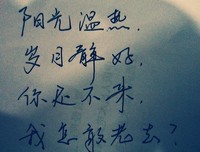 阳光温热，
岁月静好，
你还不来，
我怎敢老去？